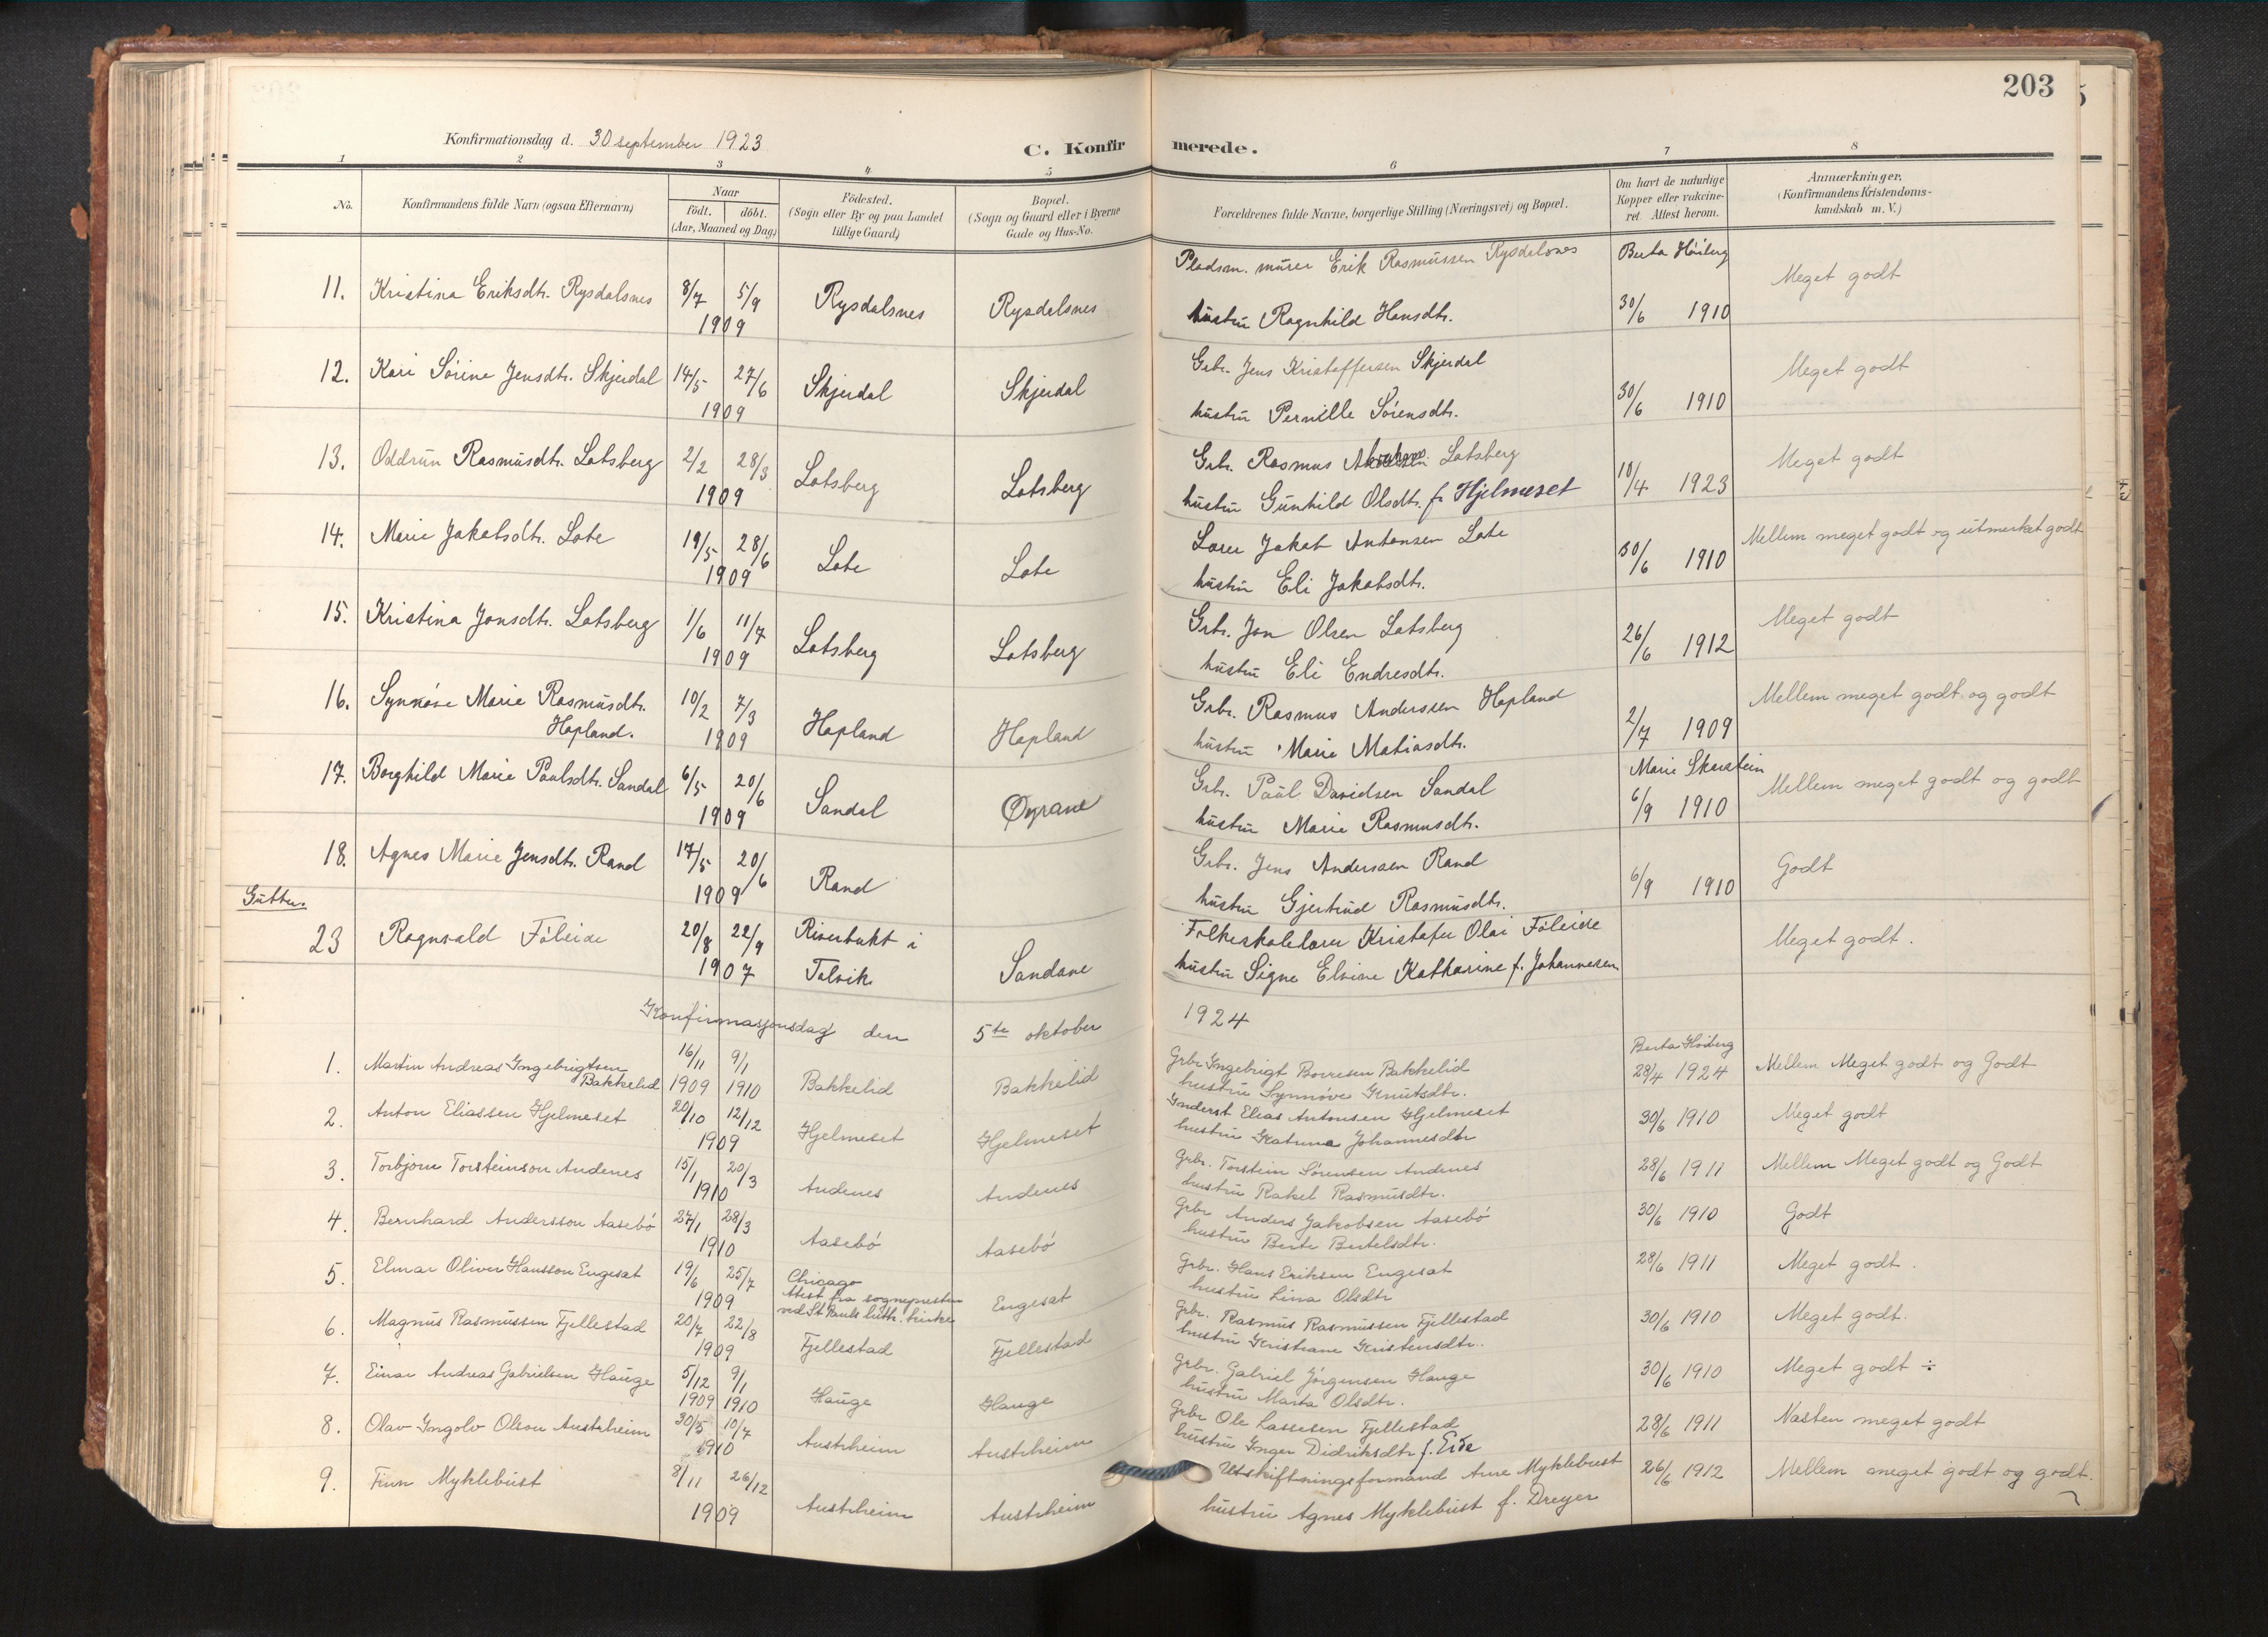 203
Konfirmationsdag d. 30 september 1923
C. Konfirmerede.
1 2 3 4 5 6 7 8
No. Konfirmandens fulde Navn (ogsaa Efternavn) Naar födt. döbt. (Aar, Maaned og Dag) Födested. (Sogn eller By og paa Landet tillige Gaard) Bopæl. (Sogn og Gaard eller i Byerne Gade og Hus-No. Forældrenes fulde Navne, borgerlige Stilling (Næringsvei) og Bopæl. Om havt de naturlige Kopper eller vakcineret. Attest herom. Anmærkninger. (Konfirmandens Kristendomskundskab m. V.)
11. Kristina Eriksdtr. Rysdalsnes 8/7 5/9 1909 Rysdalsnes Rysdalsnes Pladsm. murer Erik Rasmussen Rysdalsnes Berta Höiberg Meget godt
hustru Ragnhild Hansdtr. 30/6 1910
12. Kari Sörine Jensdtr. Skjerdal 14/5 27/6 1909 Skjerdal Skjerdal Grbr. Jens Kristoffersen Skjerdal Meget godt
hustru Pernille Sörensdtr. 30/6 1910
13. Oddrun Rasmusdtr. Lotsberg 2/2 28/3 1909 Lotsberg Lotsberg Grbr. Rasmus Lotsberg Meget godt
hustru Gunhild Olsdtr. f. Hjelmeset 10/4 1923
14. Marie Jakobsdtr. Lote 19/5 28/6 1909 Lote Lote Lærer Jakob Antonsen Lote Mellem meget godt og utmerket godt
hustru Eli Jakobsdtr. 30/6 1910
15. Kristina Jonsdtr. Lotsberg 1/6 11/7 1909 Lotsberg Lotsberg Grbr. Jon Olsen Lotsberg Meget godt
hustru Eli Endresdtr. 26/6 1912
16. Synnöve Marie Rasmusdtr. Hopland. 10/2 7/3 1909 Hopland Hopland Grbr. Rasmus Anderssen Hopland Mellem meget godt og godt
hustru Marie Matiasdtr. 2/7 1909
17. Borghild Marie Paulsdtr. Sandal 6/5 20/6 1909 Sandal Øyrane Grbr. Paul Davidsen Sandal Marie Skarstein Mellem meget godt og godt
hustru Marie Rasmusdtr. 6/9 1910
18. Agnes Marie Jensdtr. Rand 17/5 20/6 1909 Rand Grbr. Jens Anderssen Rand Godt
hustru Gjertrud Rasmusdtr. 6/9 1910
Gutter.
23 Ragnvald Föleide 20/8 22/9 1907 Riverbukt i Talvik Sandane Folkeskolelærer Kristofer Olai Föleide Meget godt.
hustru Signe Elvine Katharine f. Johannesen
Konfirmasjonsdag den 5te oktober 1924
1. Martin Andreas Ingebrigtsen Bakkelid 16/11 1909 9/1 1910 Bakkelid Bakkelid Grbr Ingebrigt Borresen Bakkelid Berta Höiberg 28/4 1924 Mellem Meget godt og Godt
hustru Synnöve Knutsdtr.
2. Anton Eliassen Hjelmeset 20/10 12/12 1909 Hjelmeset Hjelmeset Inderst Elias Antonsen Hjelmeset 30/6 1910 Meget godt
hustru Katrina Johannesdtr
3. Torbjorn Torsteinson Andenes 15/1 20/3 1910 Andenes Andenes Grbr. Torstein Sörensen Andenes 28/6 1911 Mellem Meget godt og Godt
hustru Rakel Rasmusdtr.
4. Bernhard Andersson Aasebö 27/1 28/3 1910 Aasebö Aasebö Grbr Anders Jakobsen Aasebö 30/6 1910 Godt
hustru Berte Bertelsdtr.
5. Elmar Oliver Hansson Engeset 19/6 25/7 1909 Chicago Attest fra sognepresten ved St Pauls luth. kirke Engeset Grbr. Hans Eriksen Engesat 28/6 1911 Meget godt.
hustru Lina Olsdtr
6. Magnus Rasmussen Fjellestad 20/7 22/8 1909 Fjellestad Fjellestad Grbr. Rasmus Rasmussen Fjellestad 30/6 1910 Meget godt.
hustru Kristiane Kristensdtr.
7. Einar Andreas Gabrielsen Hauge 5/12 1909 9/1 1910 Hauge Hauge Grbr. Gabriel Jörgensen Hauge 30/6 1910 Meget godt ÷
hustru Marta Olsdtr.
8. Olav Ingolv Olson Austrheim 30/5 10/7 1910 Austrheim Austrheim Grbr Ole Lassesen Fjellestad 28/6 1911 Næsten meget godt
hustru Inger Didriksdtr f. Eide
9. Finn Myklebust 8/11 26/12 1909 Austrheim Austrheim Utskiftningsformand Arne Myklebust 26/6 1912 Mellem meget godt og godt.
hustru Agnes Myklebust f. Dreyer